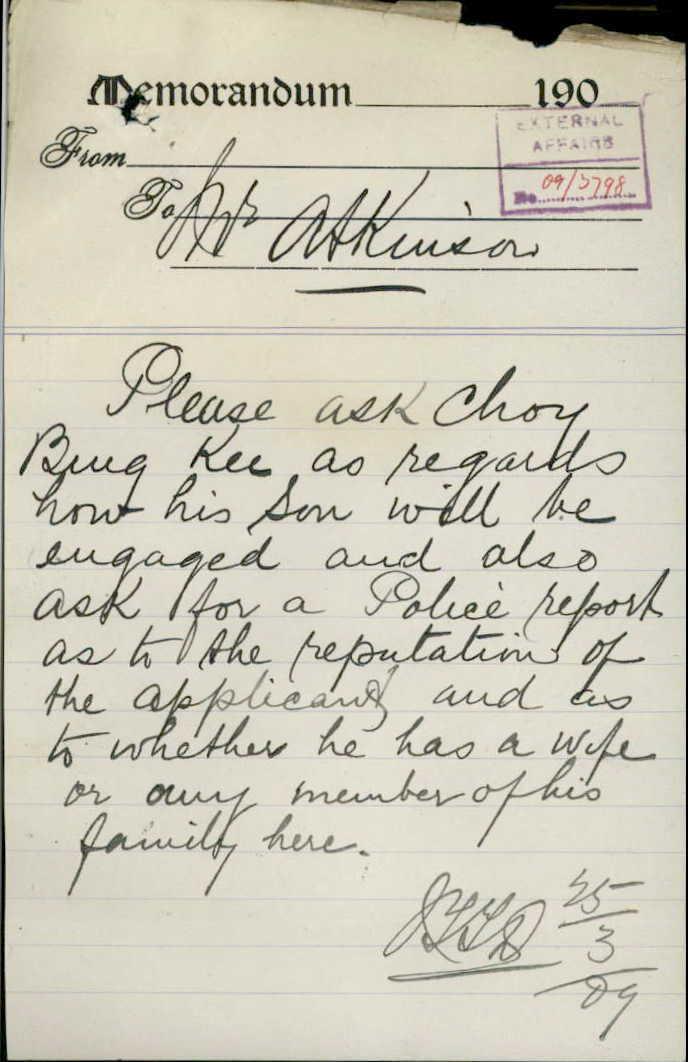 Memorandum 190
EXTERNAL
AFFAIRS
From
No. 09/3798
To Mr Atkinson
Please ask Choy
Bing Kee as regards
how his son will be
engaged and also
ask for a Police report
as to the reputation of
the applicant and as
to whether he has a wife
or any member of his
family here.
25
3
09